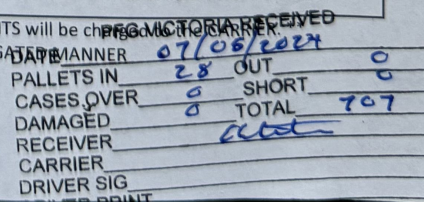 TS will be charged to the CARRIER.
PFG VICTORIA RECEIVED
MANNER
DATE 07/06/2024
PALLETS IN 28 OUT 0
CASES OVER 0 SHORT 0
DAMAGED 0 TOTAL 707
RECEIVER
CARRIER
DRIVER SIG
DRIVER PRINT